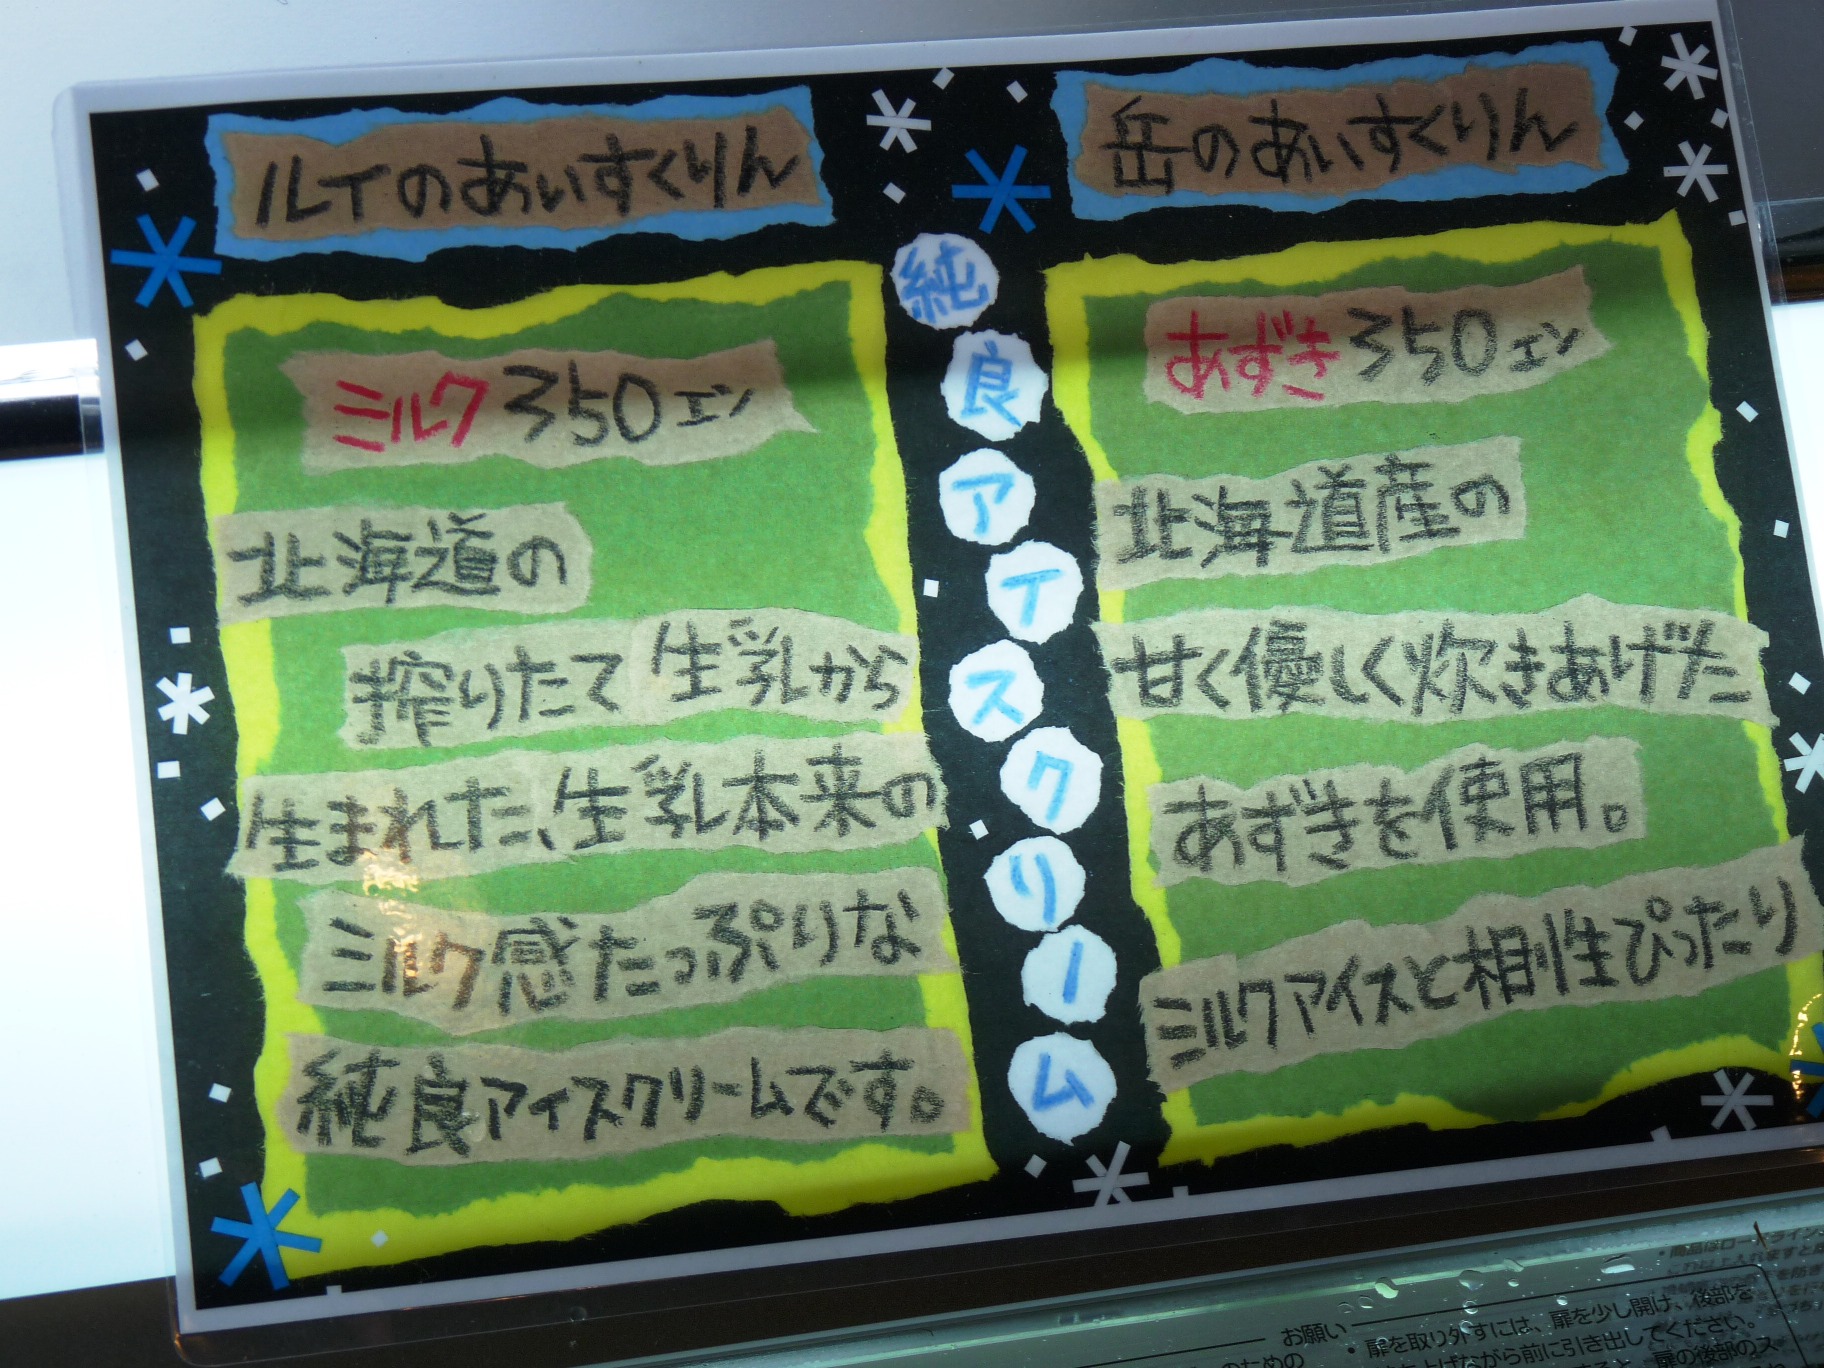 ルイのあいすくりん
ミルク350エン
北海道の
搾りたて生乳から
生まれた、生乳本来の
ミルク感たっぷりな
純良アイスクリームです。
純良アイスクリーム
岳のあいすくりん
あずき350エン
北海道産の
甘く優しく炊きあげた
あずきを使用。
ミルクアイスと相性ぴったり
お願い
・扉を取り外すには、扉を少し開け、後部を
前に引き出してください。
のための
扉の後部のス